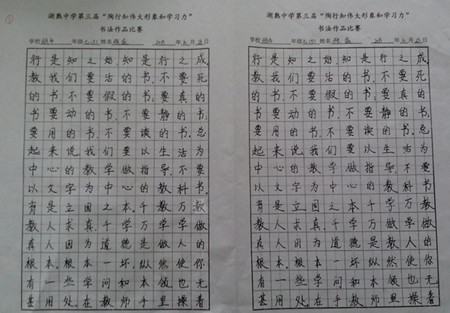 湖熟中学第三届“陶行知伟大形象和学习力”
书法作品比赛
学校 年级 姓名
行是知之始知是行之成
教我们要活的书.不要死
的书.不要假的书.要真的
书要动的书.不要静的书.
要用的书.不要读的书.总
起来说我们要以生活为
中心的教学做指导,不要
以文字为中心的教科书.
有是立国之本.千教万教
教人求真.千学万学学做
真人因为道德是做人的
根本.根本一坏.纵然使你
有一些学问和本领也无
甚用处.在教师手里操着
湖熟中学第三届“陶行知伟大形象和学习力”
书法作品比赛
学校 年级 姓名
行是知之始知是行之成
教我们要活的书.不要死
的书.不要假的书.要真的
书要动的书.不要静的书.
要用的书.不要读的书.总
起来说我们要以生活为
中心的教学做指导,不要
以文字为中心的教科书.
有是立国之本.千教万教
教人求真.千学万学学做
真人因为道德是做人的
根本.根本一坏.纵然使你
有一些学问和本领也无
甚用处.在教师手里操着